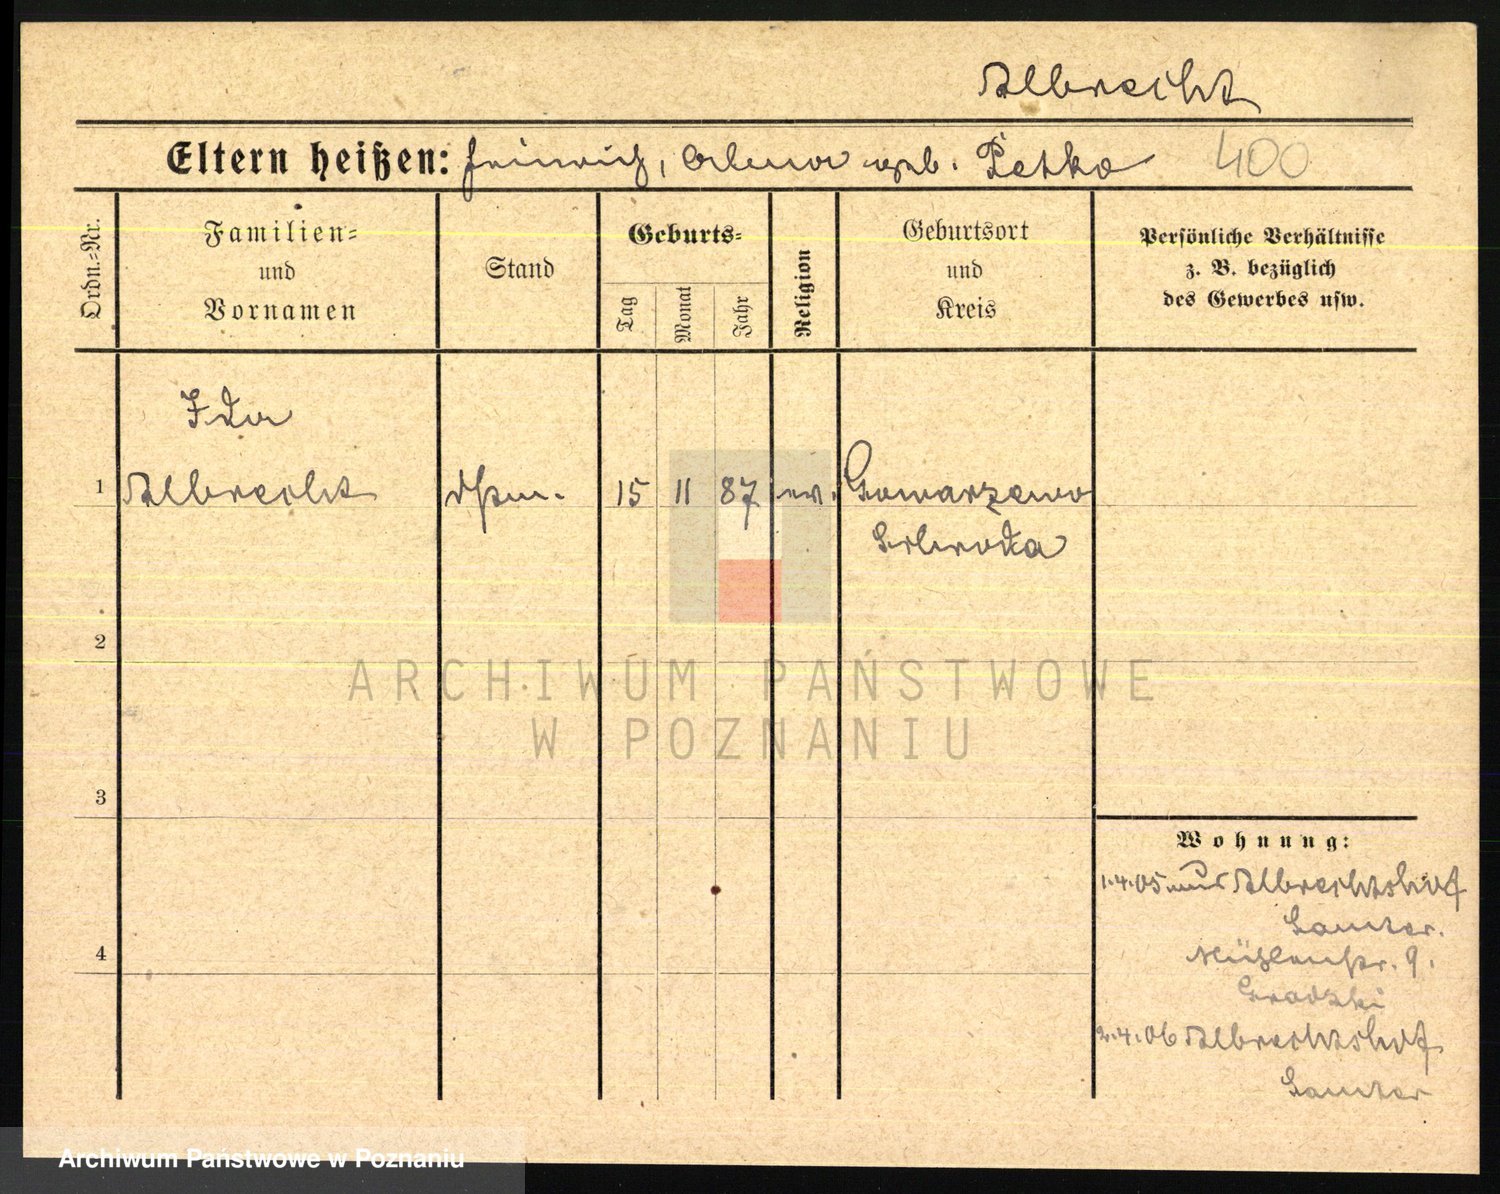 Albrecht
Eltern heißen: Heinrich, geb. Petzke 400
Ordn.=Nr.
Familien=
und
Vornamen
Stand
Geburts=
Tag
Monat
Jahr
Religion
Geburtsort
und
Kreis
Persönliche Verhältnisse
z. B. bezüglich
des Gewerbes usw.
Ida
1 Albrecht 15 11 87 ev. Gowarzewo
Schroda
2
3
4
Wohnung:
1.4.05 aus Albrechtshof
Samter.
Mühlenstr. 9.
Gradzki
2.4.06 Albrechtshof
Samter
ARCHIWUM PAŃSTWOWE
W POZNANIU
Archiwum Państwowe w Poznaniu